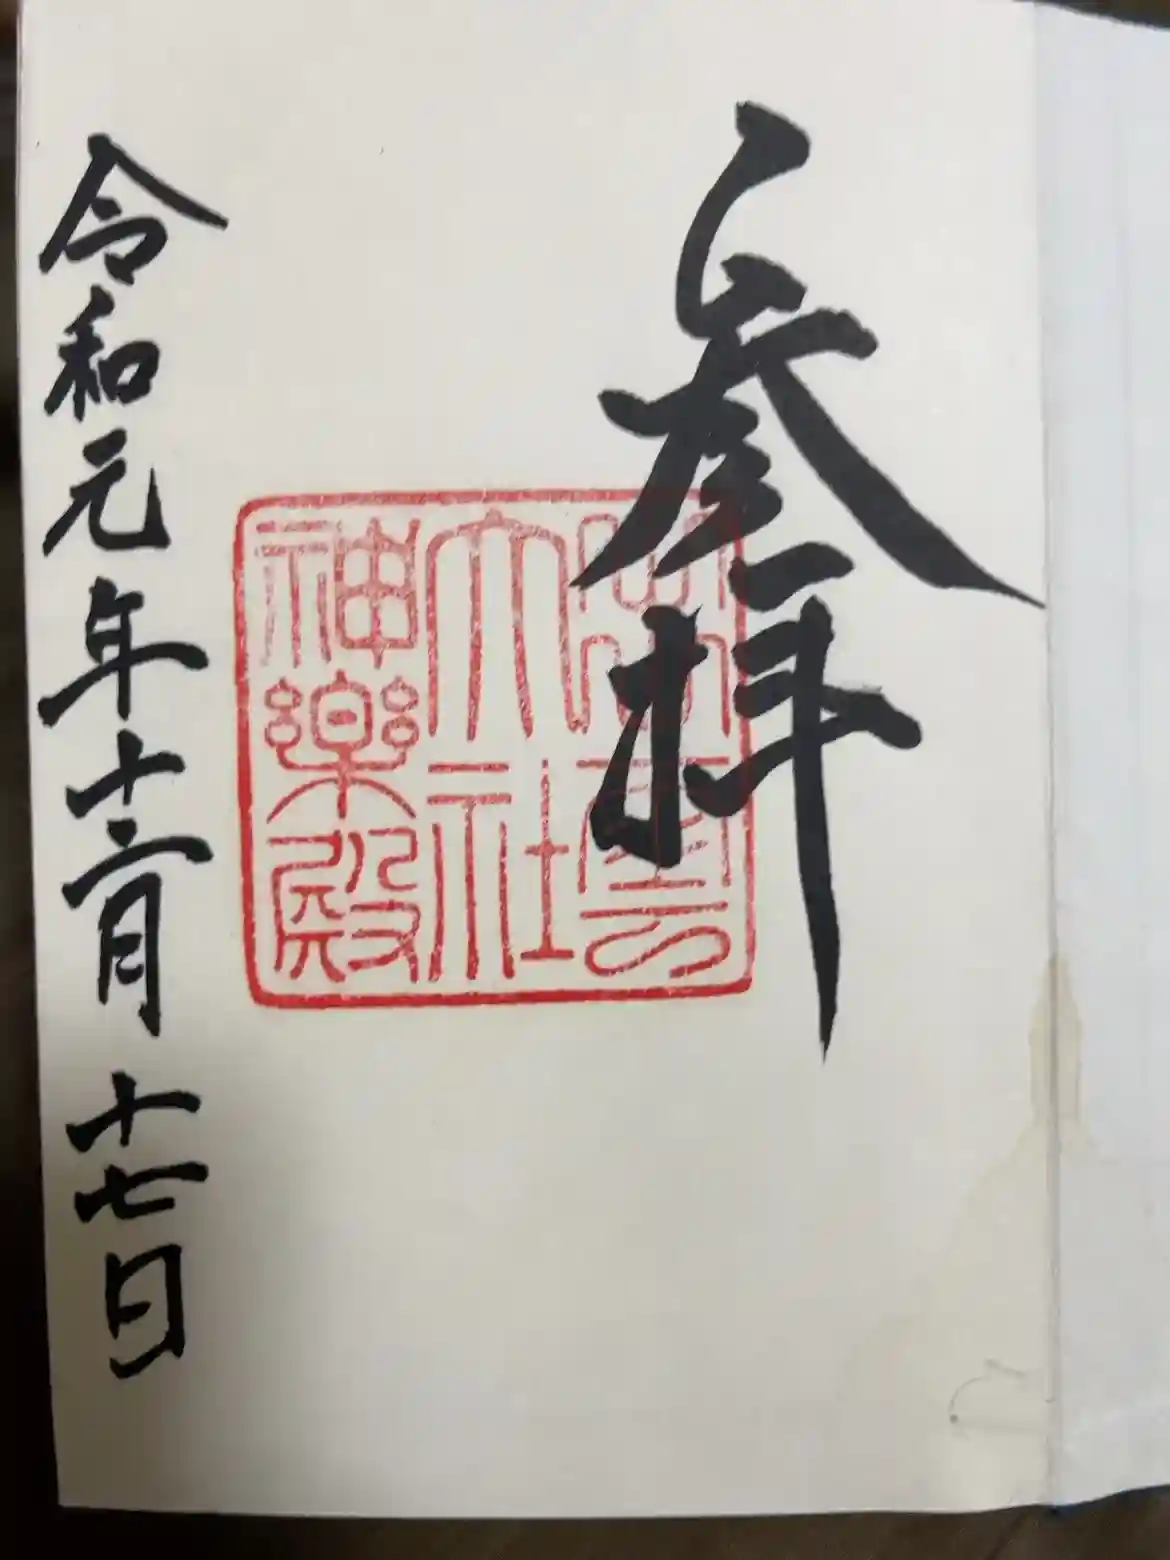 参拝
出雲
大社
神樂殿
令和元年十二月十七日